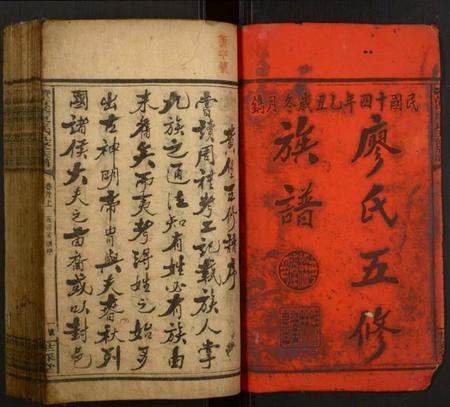 民國十四年乙丑歲冬月鐫
廖氏五修
族譜
五修族序
嘗讀周禮考工記載族人掌
九族之通法知有姓必有族由
來舊矣而夷考得姓之始多
出古神明帝冑與夫春秋列
國諸侯大夫之苗裔或以封邑
卷首上